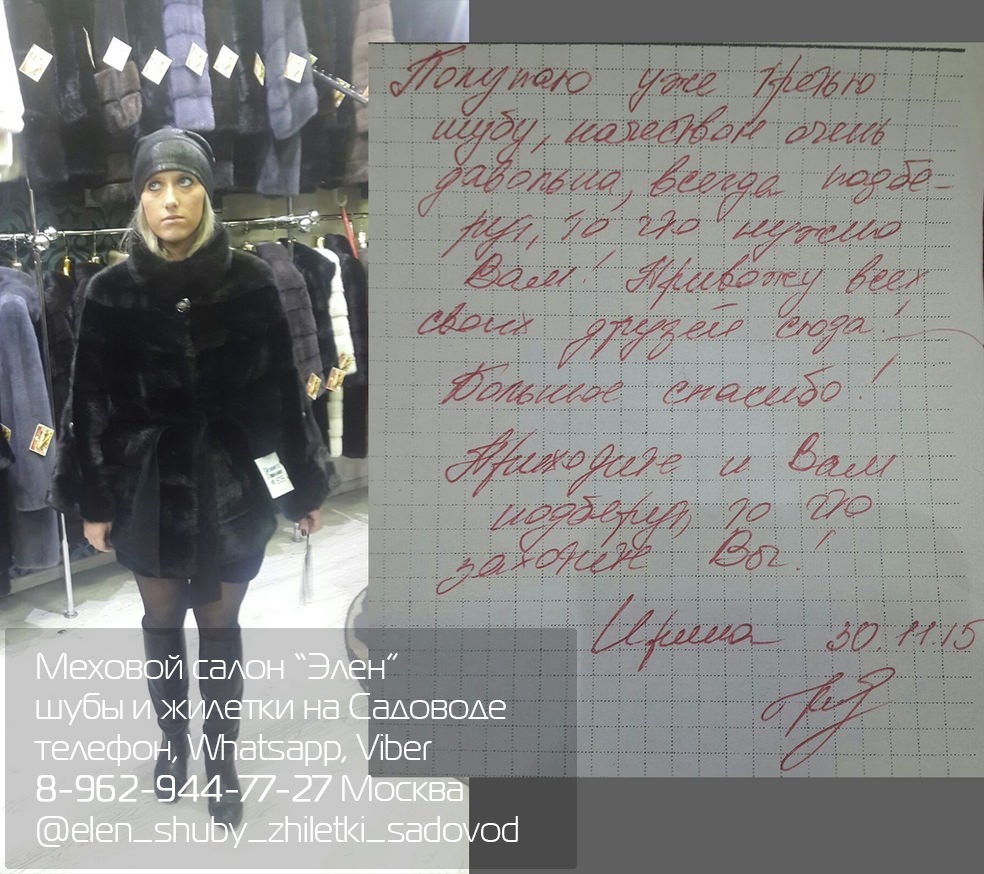 Покупаю уже третью
шубу, качеством очень
давольна, всегда подбе-
рут, то что нужно
Вам! Привожу всех
своих друзей сюда!
Большое спасибо!
Приходите и Вам
подберут, то что
захотите Вы!
Ирина 30.11.15
Меховой салон “Элен”
шубы и жилетки на Садоводе
телефон, Whatsapp, Viber
8-962-944-77-27 Москва
@elen_shuby_zhiletki_sadovod